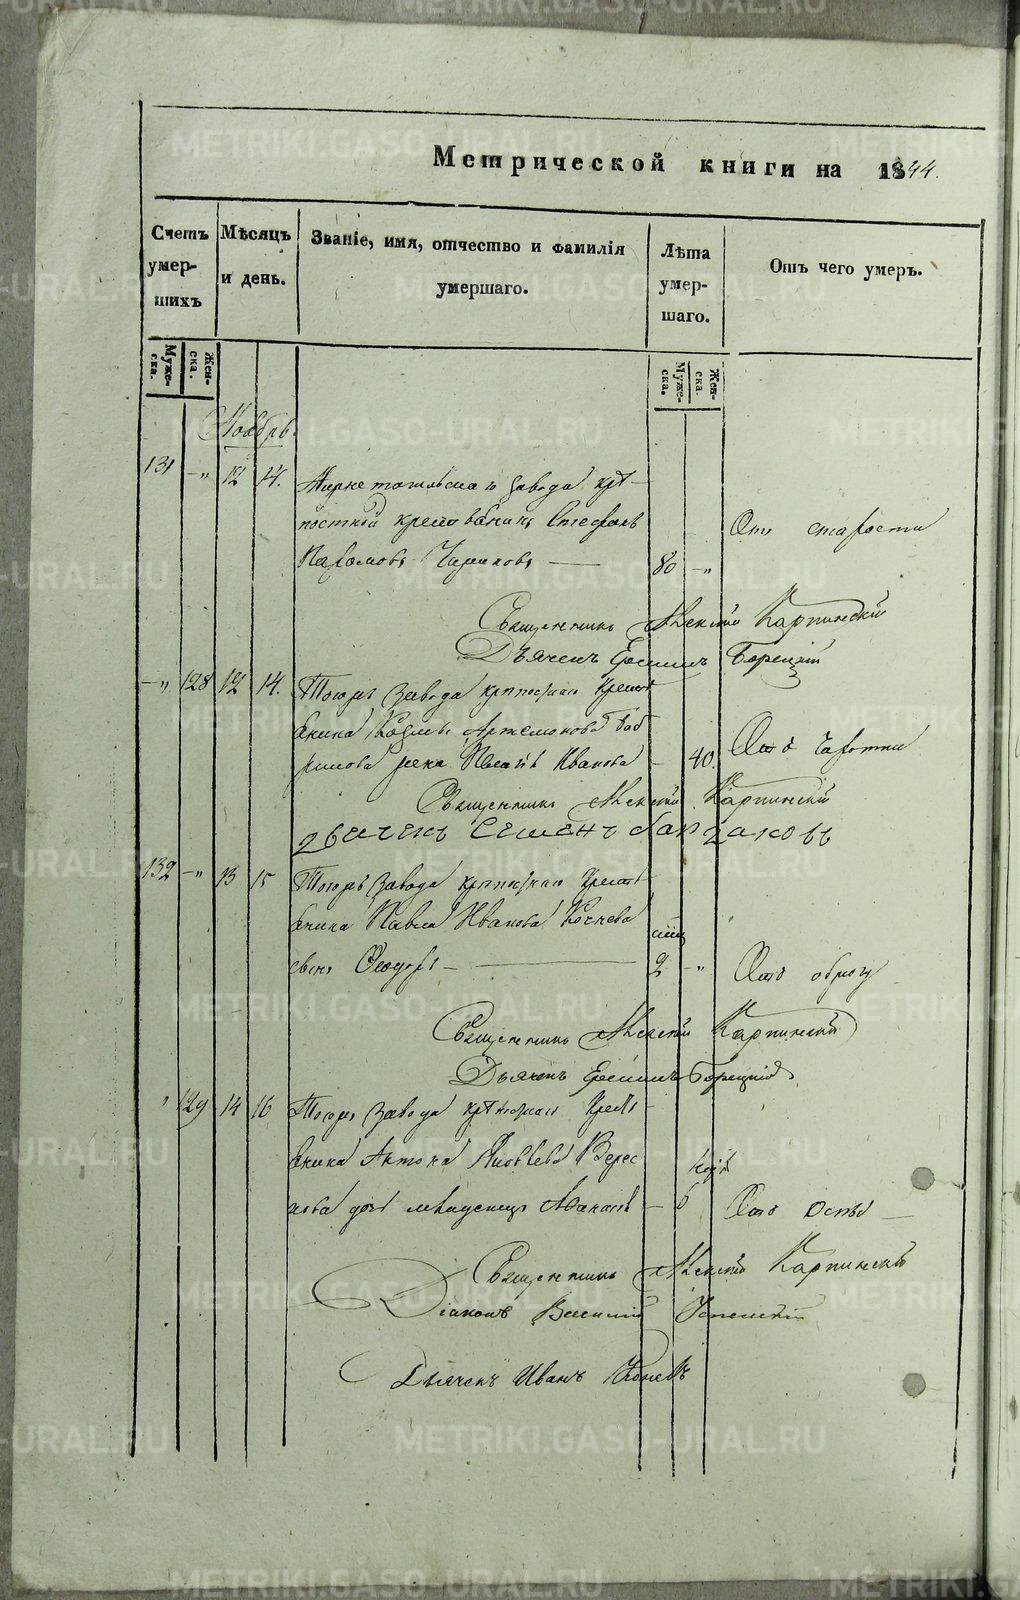 Метрической книги на 1844.
Счетъ умер-шихъ
Мѣсяцъ и день.
Званіе, имя, отчество и фамилія умершаго.
Лѣта умер-шаго.
Отъ чего умеръ.
Муже-ска.
Жен-ска.
Муже-ска.
Жен-ска.
Ноябрь.
131 -" 12 14. завода крѣ-
постной крестьянинъ Стефанъ
Пахомовъ 80 -" Отъ старости
Священникъ Алексій Карпинскій
Дьячекъ Борецкій
-" 128 12 14. Тогожъ завода крѣпостнаго крестья
нина Козмы Артемонова
жена Пелагія Иванова 40. Отъ чахотки
Священникъ Алексій Карпинскій
дьячекъ Семенъ
132 -" 13 15 Тогожъ завода крѣпостнаго крестья
нина Павла Иванова
сынъ Ѳеодоръ 2 -" Отъ
Священникъ Алексій Карпинскій
Дьячекъ Борецкій
" 129 14 16 Тогожъ завода крѣпостнаго крестья
нина Антона Яковлева Верес
дочь 6 Отъ оспы
Священникъ Алексій Карпинскій
Діаконъ Василій Успенскій
Дьячекъ Иванъ
METRIKI.GASO-URAL.RU